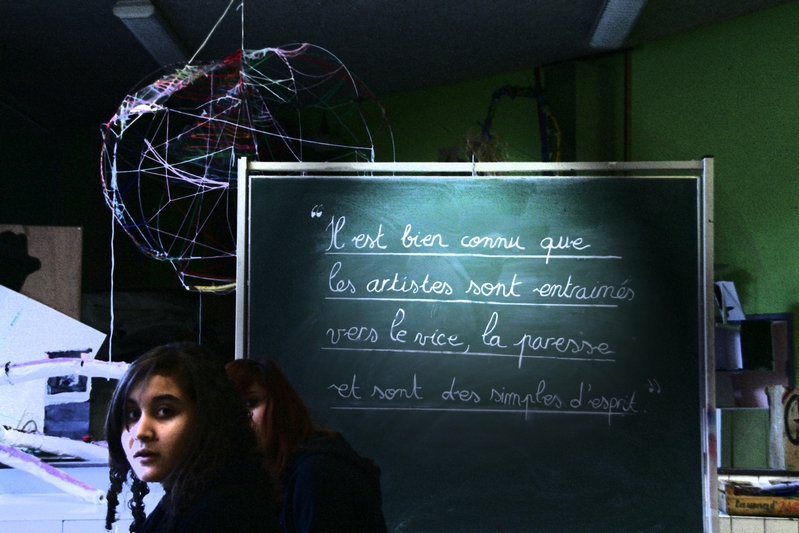 “Il est bien connu que
les artistes sont entrainés
vers le vice, la paresse
et sont des simples d'esprit.”